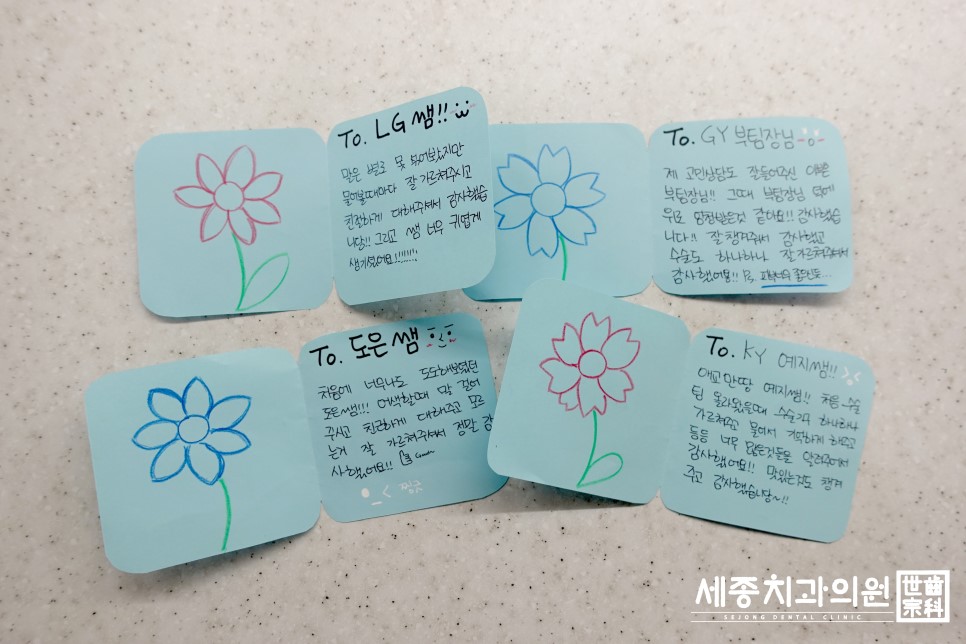 To. LG 쌤!!
말은 별로 못 섞어봤지만
물어볼때마다 잘 가르쳐주시고
친절하게 대해주셔서 감사했습
니당!! 그리고 쌤 너무 귀엽게
생기셨어요!!!!!!!
To. GY 부팀장님
제 고민상담도 잘들어주신 이쁜
부팀장님!! 그때 부팀장님 덕에
위로 엄청받은것 같아요!! 감사했습
니다!! 잘 챙겨주셔서 감사했고
수술도 하나하나 잘 가르쳐주셔서
감사했어용!!
To. 도은쌤
처음에 너무나도 도도해보였던
도은쌤!!! 어색할때 말 걸어
주시고 친근하게 대해주고 모르
는거 잘 가르쳐주셔서 정말 감
사했어요!!
찡긋
To. KY 예지쌤!!
애교만땅 예지쌤!! 처음 수술
팀 올라왔을때 수술기구 하나하나
가르쳐주고 물어서 기억하게 해주고
등등 너무 많은것들을 알려주셔서
감사했어요!! 맛있는것도 챙겨
주고 감사했습니당~!!
세종치과의원
SEJONG DENTAL CLINIC
世宗齒科